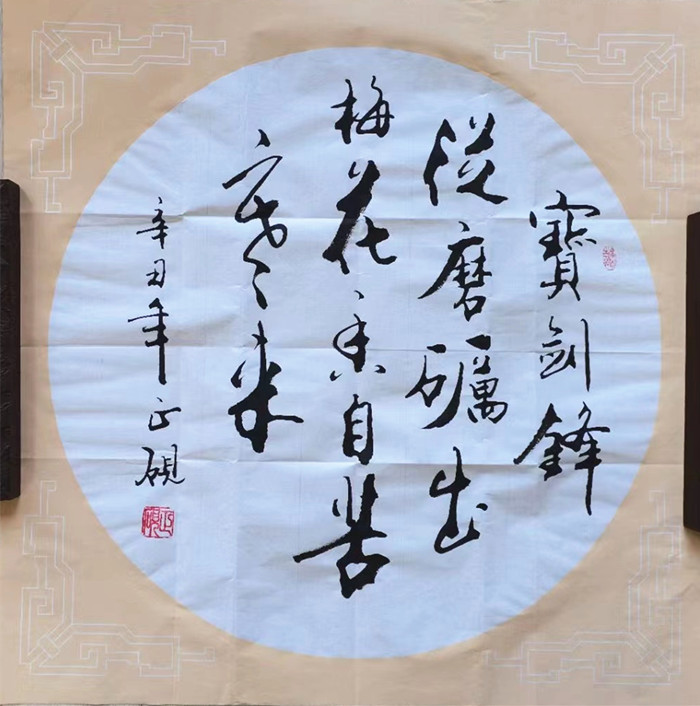 寶劍鋒
從磨礪出
梅花香自苦
寒來
辛丑年正硯